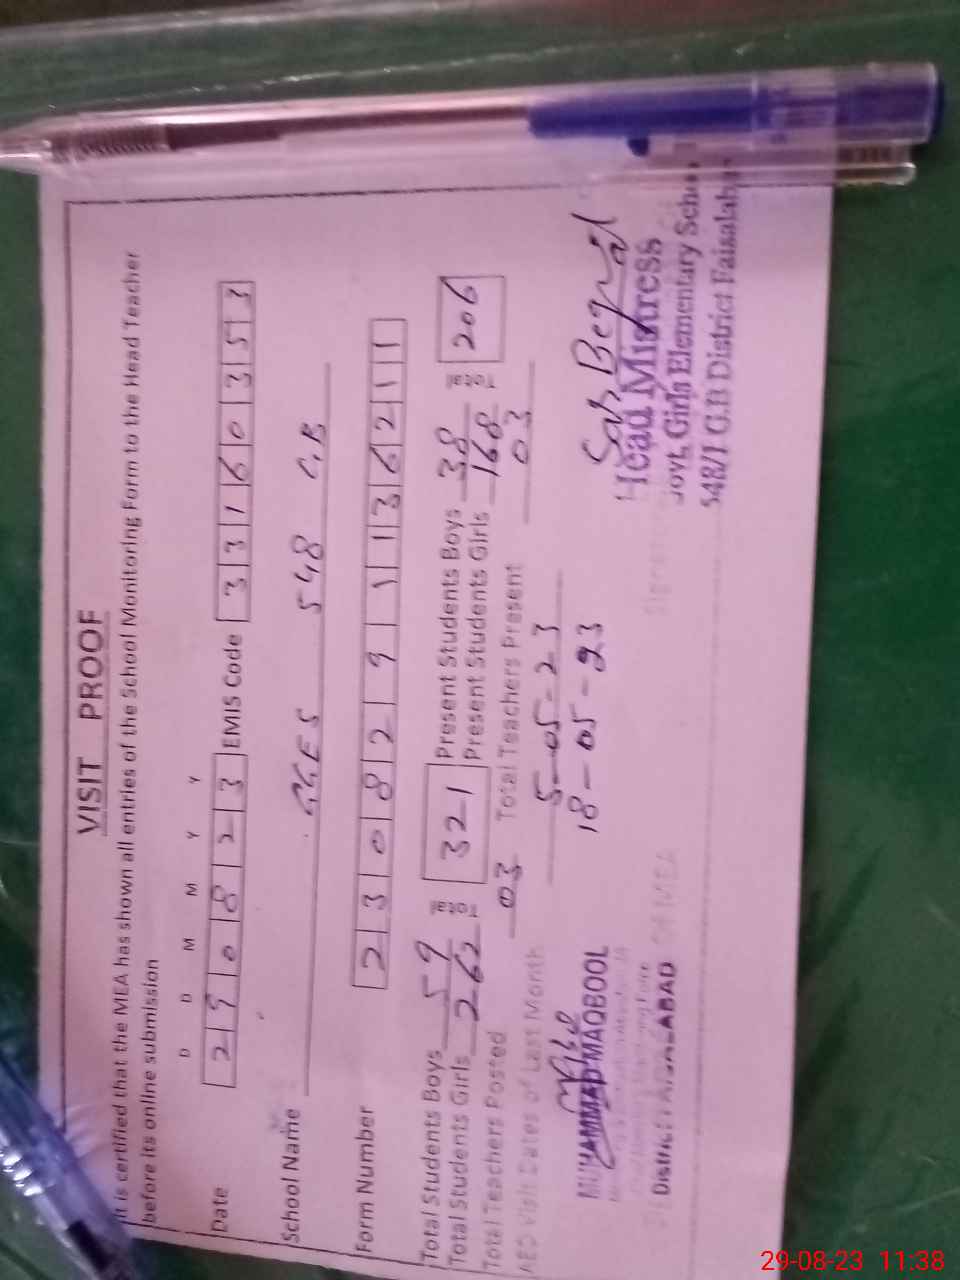 VISIT PROOF
It is certified that the MEA has shown all entries of the School Monitoring Form to the Head Teacher
before its online submission
D D M M Y Y
Date 2 9 0 8 2 3 EMIS Code 3 3 1 6 0 3 5 3
School Name GGES 548 GB
Form Number 2 3 0 8 2 9 1 1 1 3 6 2 1 1
Total Students Boys 59 Total 321 Present Students Boys 38 Total 206
Total Students Girls 262 Present Students Girls 168
Total Teachers Posted 03 Total Teachers Present 03
AEO Visit Dates of Last Month 5-05-23
18-05-23
MUHAMMAD MAQBOOL
District FAISALABAD
Of MEA
Head Mistress
Govt, Girls Elementary School
548/1 G.B District Faisalabad
29-08-23 11:38